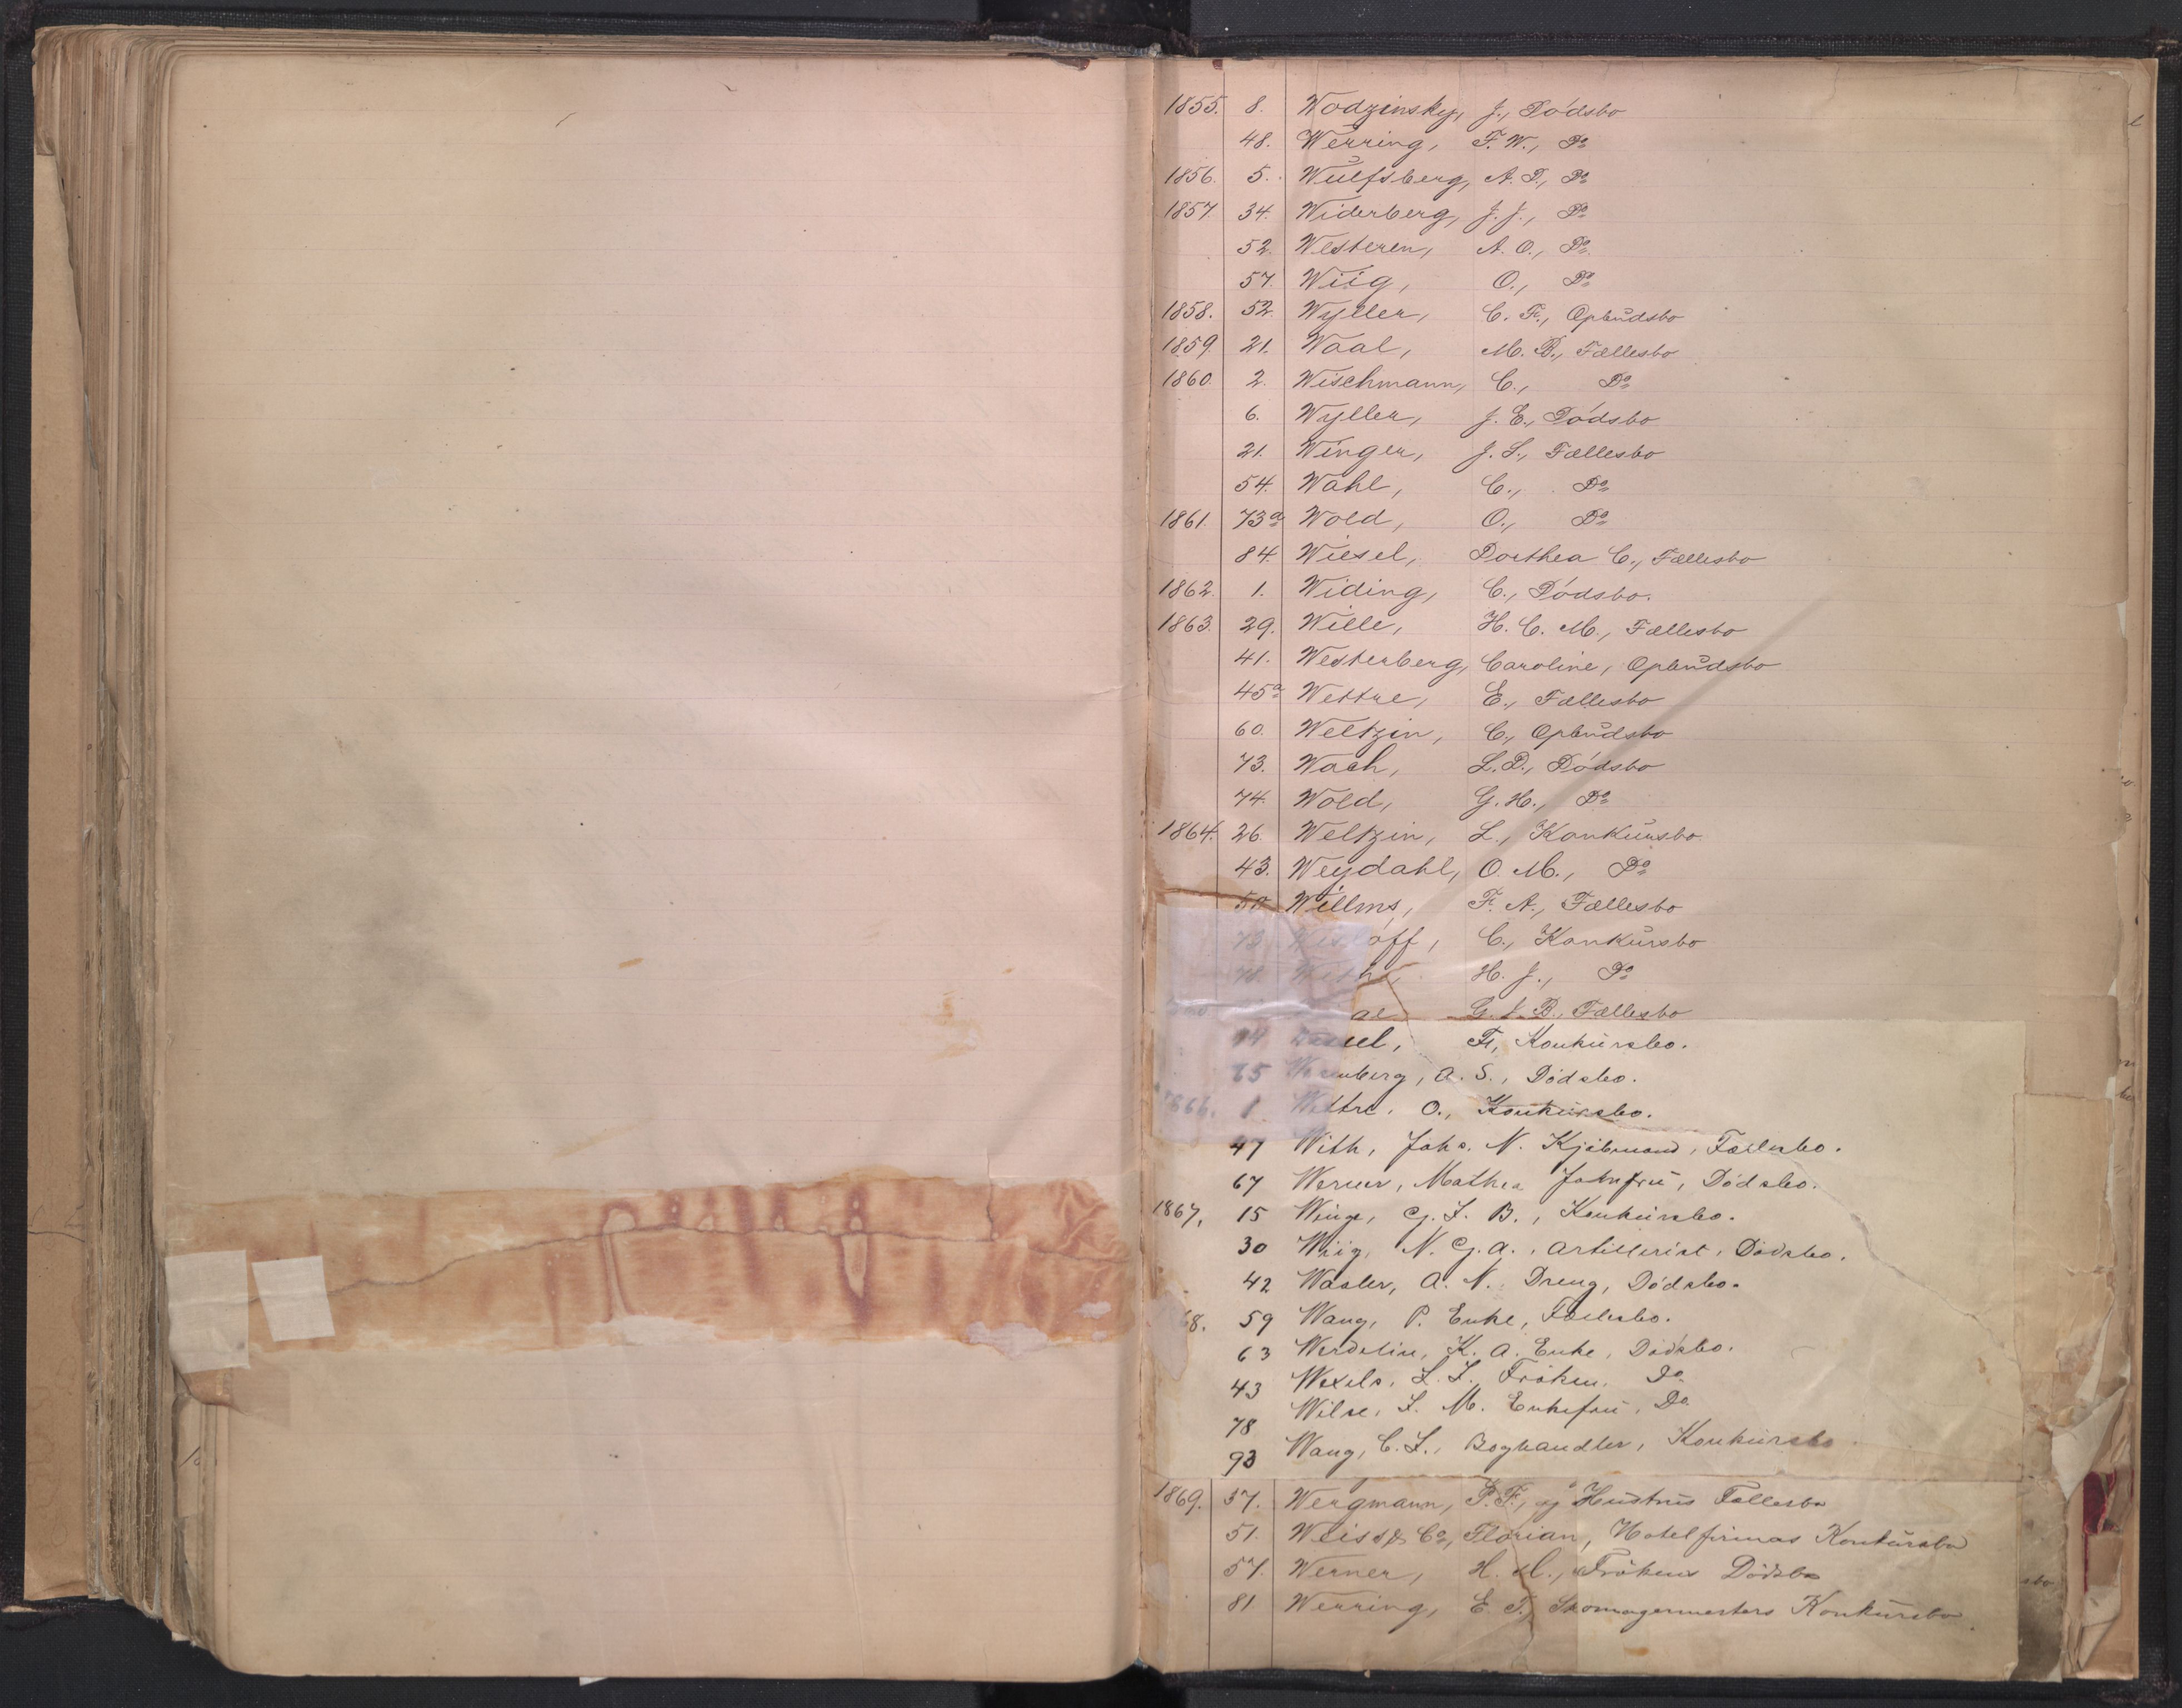 1855. 8. Wodzinsky, J., Dódsbo
48. Werring, F. W., Do
1856. 5. Wulfsberg, A. T., Do
1857. 34. Widerberg, J. J., Do
52. Westeren, A. O., Do
57. Wiig, O., Do
1858. 52. Wyller, C. F., Opbudsbo
1859. 21. Waal, M. B., Fællesbo
1860. 2. Wischmann, C., Do
6. Wyller, J. E., Dódsbo
21. Winger, J. S., Fællesbo
54. Wahl, C., Do
1861. 73a Wold, O., Do
84. Wiesel, Dorthea C., Fællesbo
1862. 1. Widing, C., Dódsbo.
1863. 29. Wille, H. C. M., Fællesbo
41. Westerberg, Caroline, Opbudsbo
45a Wettre, E., Fællesbo
60. Weltzin, C., Opbudsbo
73. Wach, L. D., Dódsbo
74. Wold, G. H., Do
1864. 26. Weltzin, L., Konkursbo.
43. Weydahl, O. M., Do
50 Willms, F. A., Fællesbo
73 C., Konkursbo
78 H. J., Do
G. J. B., Fællesbo
F., Konkursbo.
65 A. S., Dódsbo.
1866. 1 Wettre, O., Konkursbo.
47 With, Johs. N. Kjóbmand, Fællesbo.
67 Werner, Mathea Jomfru, Dódsbo.
1867. 15 Winge, G. J. B., Konkursbo.
30 Wiig, N. G. A., Artillerist, Dódsbo.
42 Wasler, A. N. Dreng, Dódsbo.
68. 59 Wang, P. Enke, Fællesbo.
63 Werdelin, K. A. Enke, Dódsbo.
43 Wexels, L. J. Fróken, Do
78 Wilse, J. M. Enkefru, Do
93 Wang, C. L., Boghandler, Konkursbo.
1869. 37. Wergmann, P. F., og Hustrus Fællesbo
51. Weiss & Co, Florian, Hotelfirmas Konkursbo
57. Werner, H. M., Frókens Dódsbo
81 Werring, E. T., Skomagermesters Konkursbo